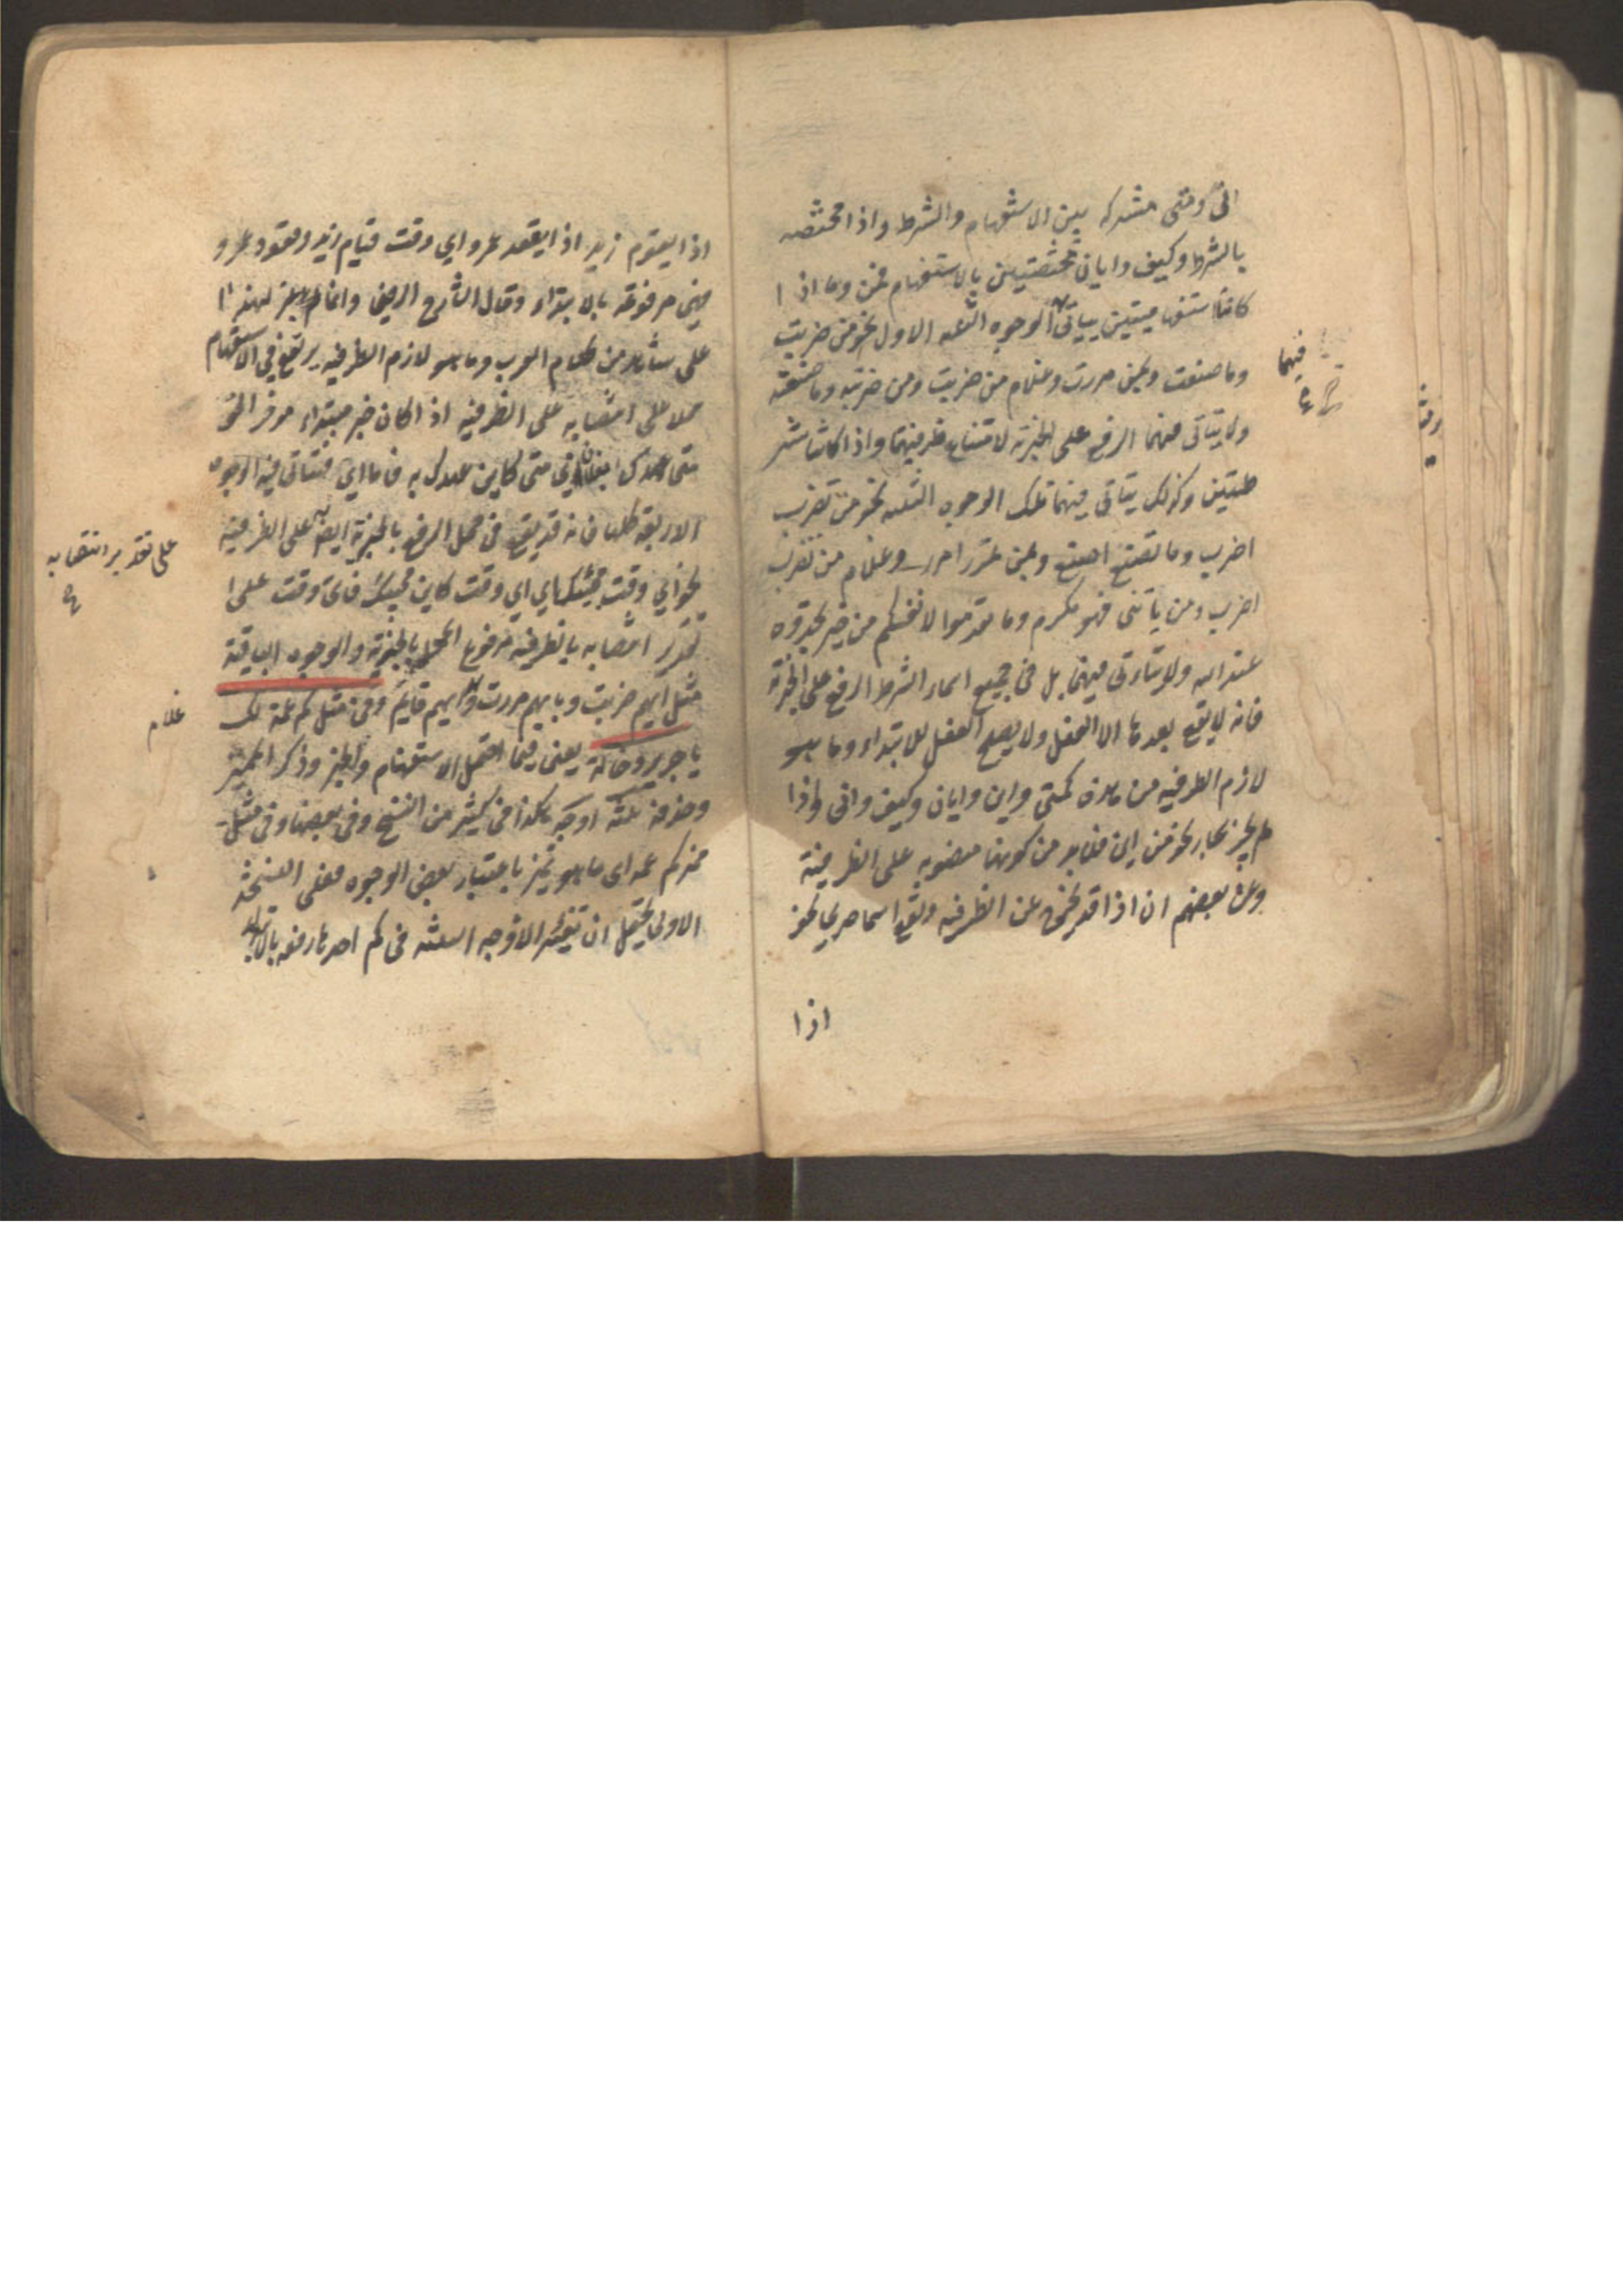 انى ومتى مشتركه بين الاستفهام والشرط واذا مختصه
بالشرط وكيف وايان مختصتين بالاستفهام فمن وما اذا
كانتا استفهاميتين يتاتى الوجوه الثلثه الاول نحو من ضربت
وما صنعت وبمن مررت وغلام من ضربت ومن ضربته وما صنعته
ولا يتاتى فيهما الرفع على الخبرية لامتناع ظرفيتهما واذا كانتا شر
طيتين وكذلك يتاتى فيهما تلك الوجوه الثلثه نحو من تضرب
اضرب وما تصنع اصنع وبمن تمرر امرر وغلام من تضرب
اضرب ومن ياتنى فهو مكرم وما تقدموا لانفسكم من خير تجدوه
عند الله ولا يتاتى فيهما بل فى جميع اسماء الشرط الرفع على الخبرية
فانه لا يقع بعدها الا الفعل ولا يصلح الفعل للابتداء وما هو
لازم الظرفيه من هذه كمتى واين وايان وكيف وانى واذا
لم يجر بجار نحو من اين فلا بد من كونها منصوبه على الظرفية
وعن بعضهم ان اذا قد يخرج عن الظرفيه ويقع اسما صريحا نحو
اذا
فيهما
اذا يقوم زيد اذا يقعد عمرو اي وقت قيام زيد وقعود عمرو
فهى مرفوعة بالابتداء وقال الشارح الرضى وانا لم اعثر لهذا
على شاهد من كلام العرب وما هو لازم الظرفيه يرتفع في الاستفهام
محلا على انتصابه على الظرفيه اذا كان خبر مبتداء مؤخر نحو
متى عهدك بفلان اي متى كاين عهدك به فاما اي فتتاتى فيه الوجوه
الاربعة كلها فانه قد يقع فى محل الرفع بالخبرية ايضا على الظرفية
نحو اي وقت مجيئك اي اي وقت كاين مجيئك فاى وقت على
تقدير انتصابه بالظرفيه مرفوع المحل بالخبرية والوجوه الباقية
مثل ايهم ضربت وبايهم مررت وايهم قايم وفى مثل كم عمة لك
يا جرير وخالة يعنى فيما احتمل الاستفهام والخبر وذكر المميز
وحذفه ثلثه اوجه هكذا فى كثير من النسخ وفى بعضها وفى مثل
مميز كم عمه اى ما هو مميز باعتبار بعض الوجوه فعلى النسخة
الاولى يحتمل ان تعتبر الاوجه الثلثه فى كم احدها رفعه بالابتداء
على تقدير انتصابه
غلام